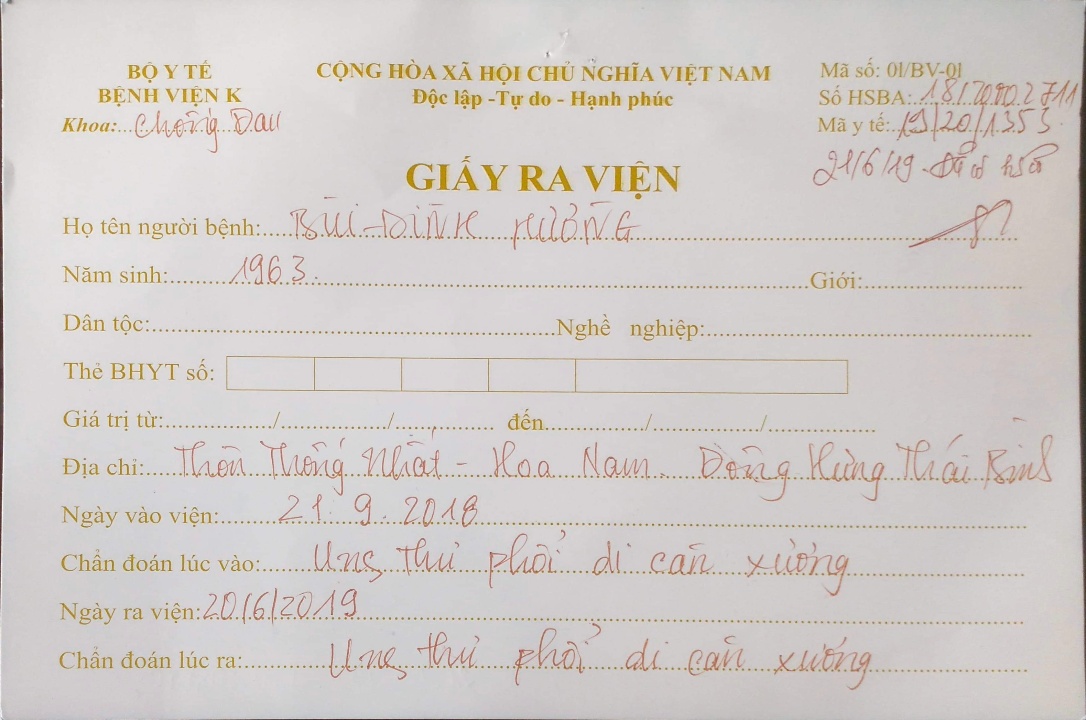 BỘ Y TẾ
BỆNH VIỆN K
Khoa: Chống Đau
CỘNG HÒA XÃ HỘI CHỦ NGHĨA VIỆT NAM
Độc lập -Tự do - Hạnh phúc
Mã số: 01/BV-01
Số HSBA: 18/7002711
Mã y tế: 19/20/1353
21/6/19
GIẤY RA VIỆN
Họ tên người bệnh: BÙI ĐÌNH HƯỞNG
Năm sinh: 1963. Giới:
Dân tộc: Nghề nghiệp:
Thẻ BHYT số:
Giá trị từ: / / đến / /
Địa chỉ: Thôn Thống Nhất - Hoa Nam. Đông Hưng Thái Bình
Ngày vào viện: 21.9.2018
Chẩn đoán lúc vào: Ung thư phổi di căn xương
Ngày ra viện: 20/6/2019
Chẩn đoán lúc ra: Ung thư phổi di căn xương